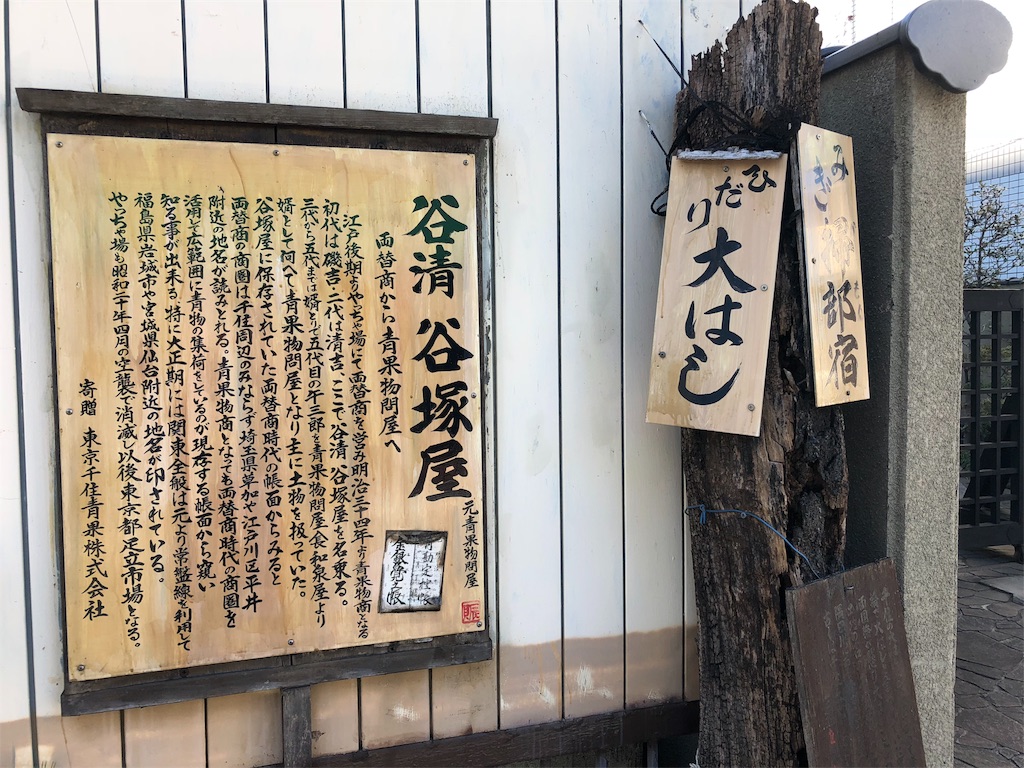 谷清 谷塚屋
元青果物問屋
両替商から青果物問屋へ
江戸後期よりやっちゃ場にて両替商を営み明治三十四年より青果物商となる
初代は磯吉・二代は清吉、ここで谷清 谷塚屋を名乗る。
三代から五代までは婿とりで五代目の午三郎を青果物問屋食和泉屋より
婿として向へて青果物問屋となり主に土物を扱っていた。
谷塚屋に保存されていた両替商時代の帳面からみると
両替商の商圏は千住周辺のみならず埼玉県草加や江戸川区平井
附近の地名が読みとれる。青果物商となっても両替商時代の商圏を
活用して広範囲に青物の集荷をしているのが現存する帳面から窺い
知る事が出来る。特に大正期には関東全般は元より常盤線を利用して
福島県岩城市や宮城県仙台附近の地名が印されている。
やっちゃ場も昭和二十年四月の空襲で消滅し以後東京都足立市場となる。
寄贈 東京千住青果株式会社
ひだり 大はし
みぎ 掃部宿